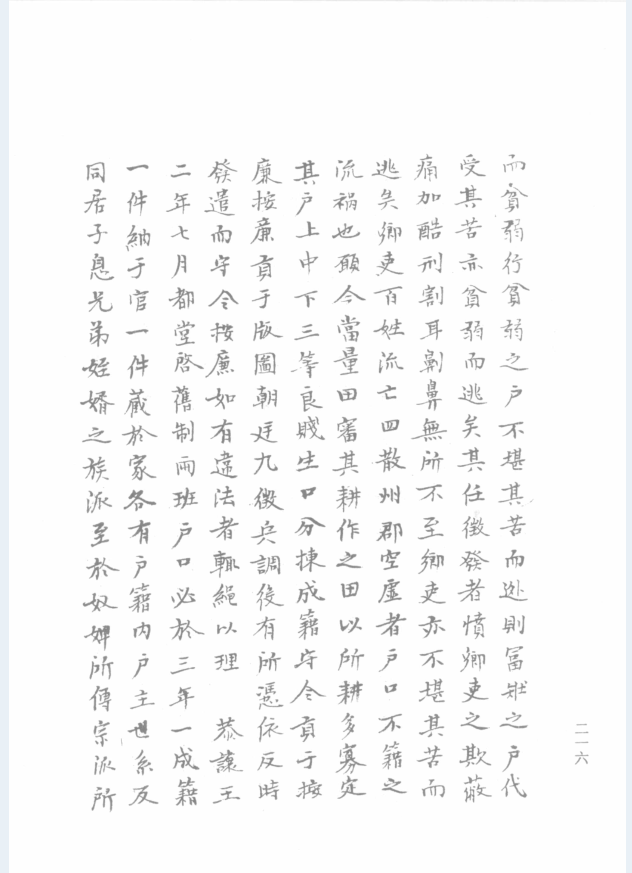 而貧弱行貧弱之戶不堪其苦而逊則冨壯之戶代
受其苦亦貧弱而逃矣其任徵發者憤鄉吏之欺蔽
痛加酷刑割耳劓鼻無所不至鄉吏亦不堪其苦而
逃矣鄉吏百姓流亡四散州郡空虛者戶口不籍之
流禍也願今當量田審其耕作之田以所耕多寡定
其戶上中下三等良賤生口分揀成籍守令貢于按
廉按廉貢于版圖朝廷九徵兵調後有所憑依反時
發遣而守令按廉如有違法者輒繩以理　恭讓王
二年七月都堂啓舊制兩班戶口必於三年一成籍
一件納于官一件藏於家各有戶籍內戶主世系反
同居子息兄弟姪婿之族派至於奴婢所傳宗派所
二一六